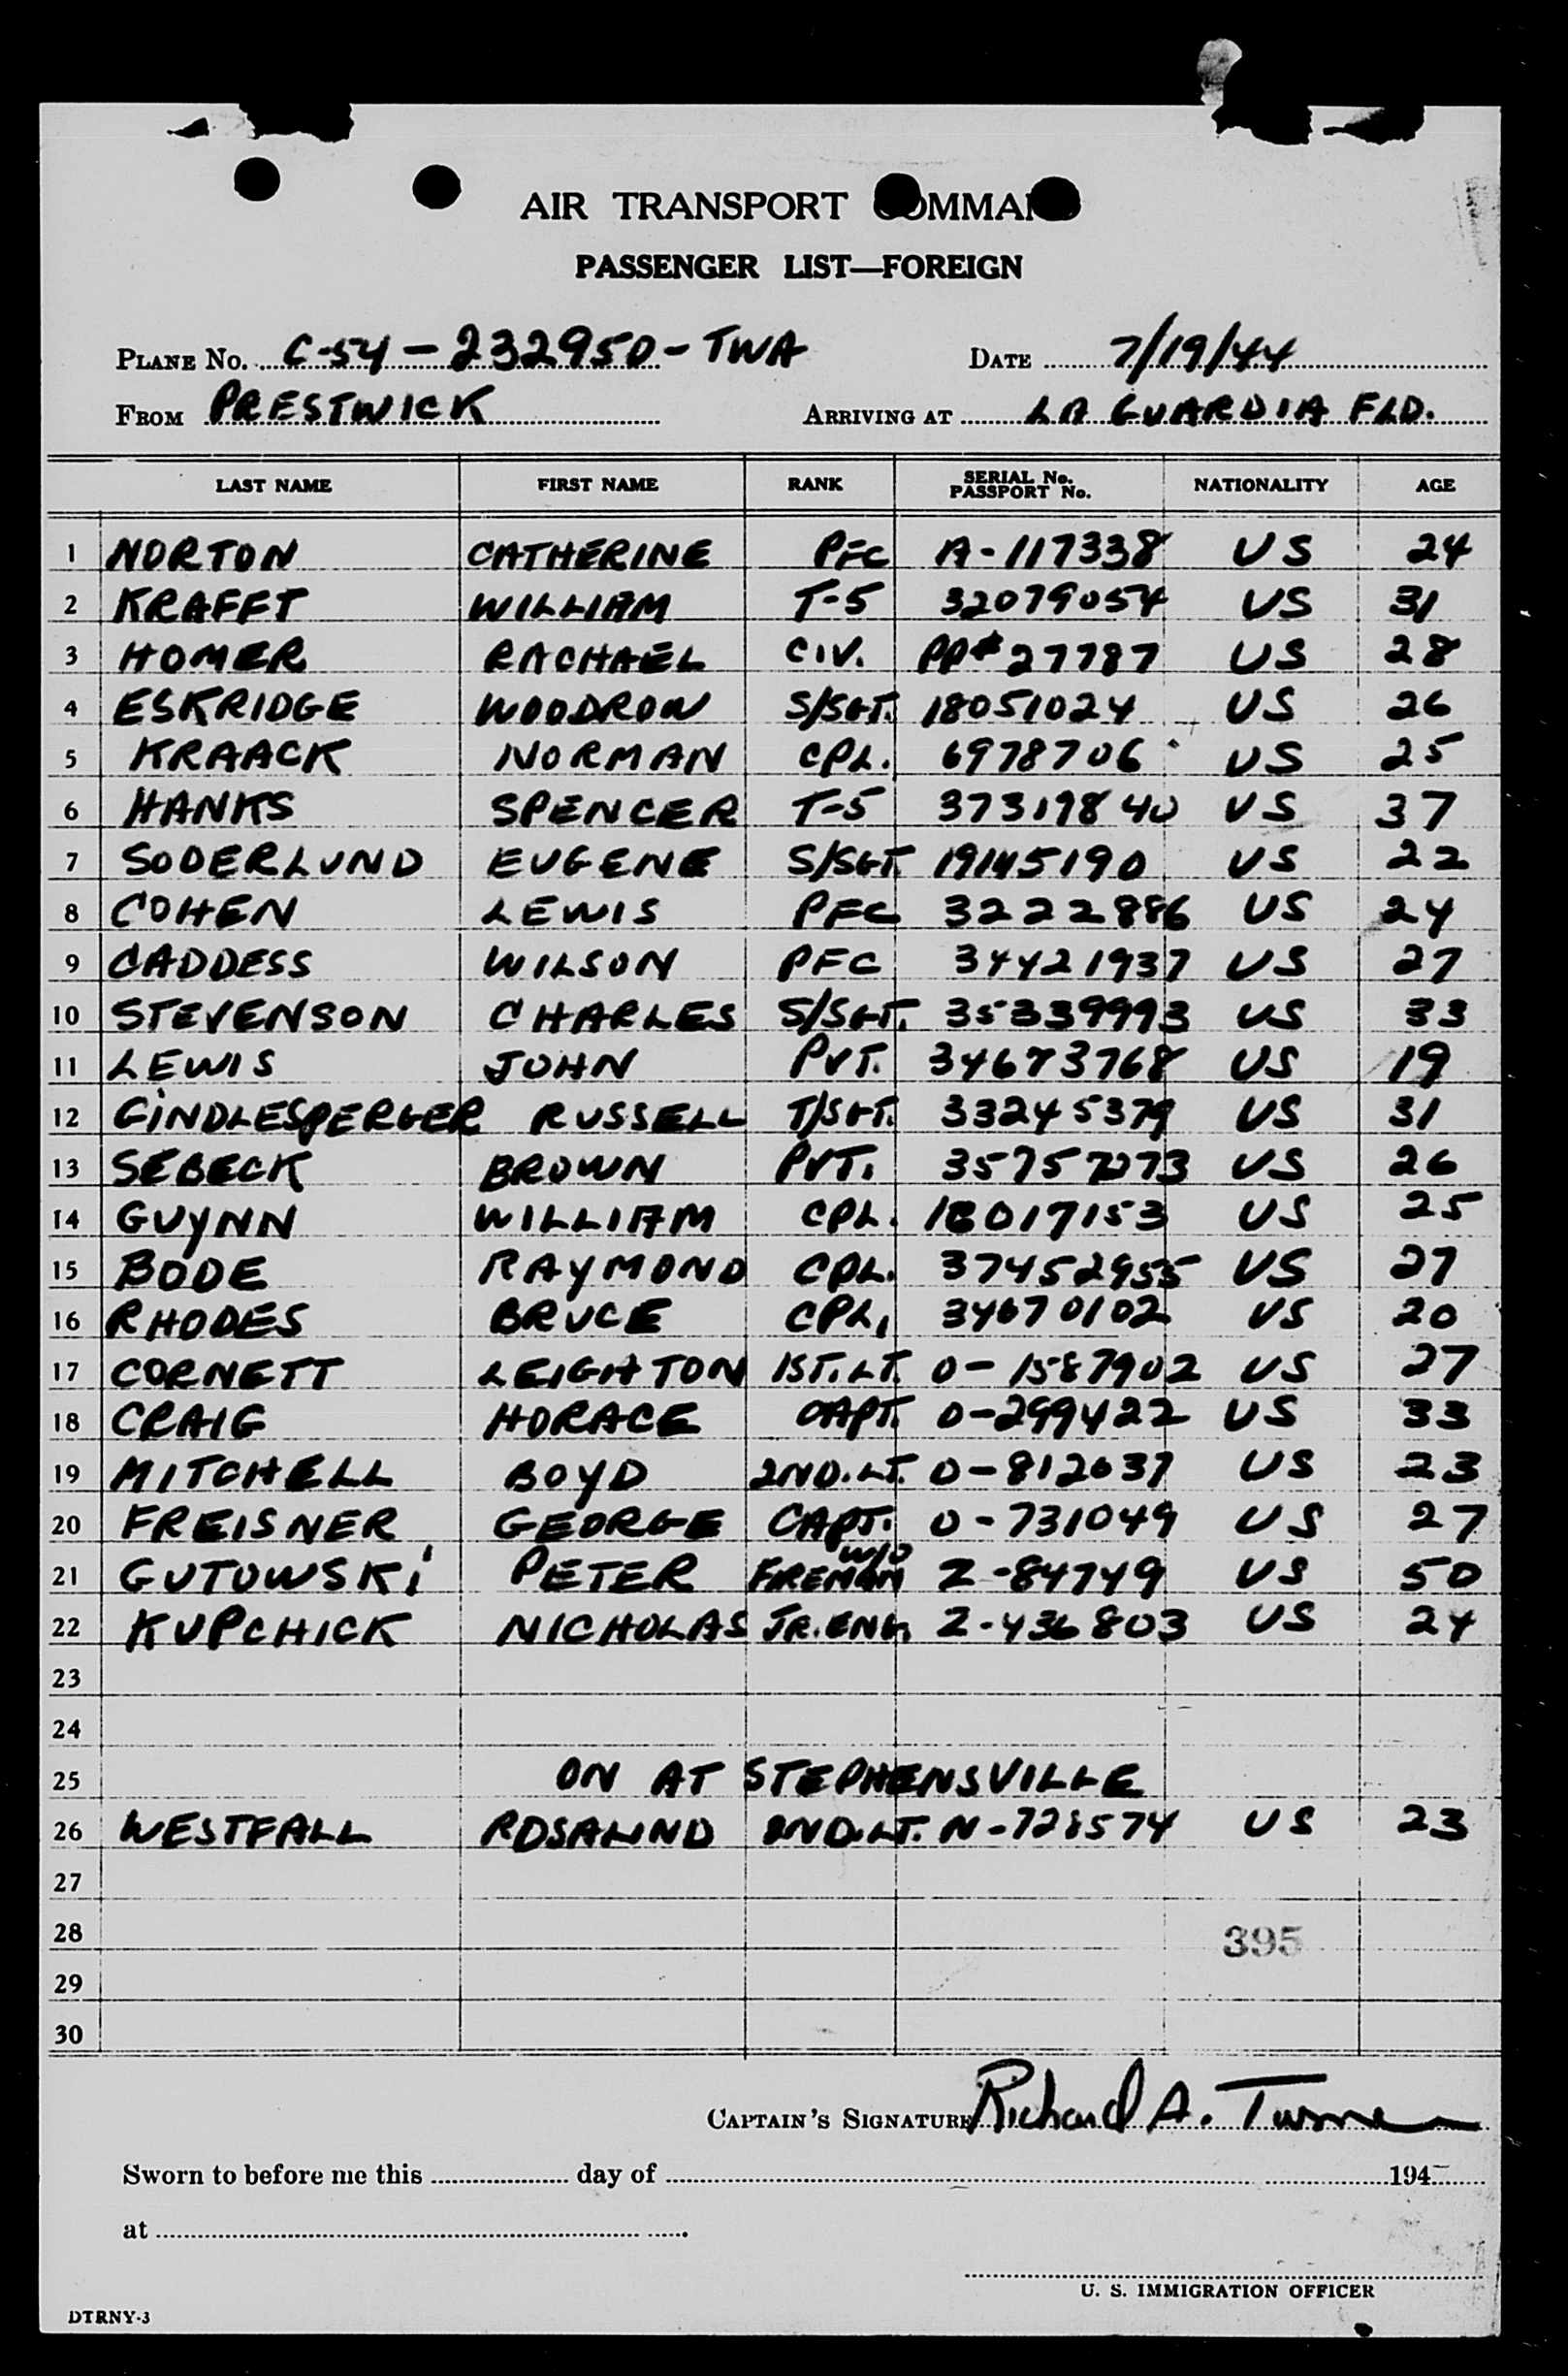 AIR TRANSPORT COMMAND
PASSENGER LIST—FOREIGN
PLANE No. C-54-232950-TWA DATE 7/19/44
FROM PRESTWICK ARRIVING AT LA GUARDIA FLD.
LAST NAME FIRST NAME RANK SERIAL No. PASSPORT No. NATIONALITY AGE
1 NORTON CATHERINE PFC A-117338 US 24
2 KRAFFT WILLIAM T-5 32079054 US 31
3 HOMER RACHAEL CIV. PP# 27787 US 28
4 ESKRIDGE WOODROW S/SGT. 18051024 US 26
5 KRAACK NORMAN CPL. 6978706 US 25
6 HANKS SPENCER T-5 37319840 US 37
7 SODERLUND EUGENE S/SGT. 19145190 US 22
8 COHEN LEWIS PFC 3222886 US 24
9 CADDESS WILSON PFC 34421937 US 27
10 STEVENSON CHARLES S/SGT. 35339993 US 33
11 LEWIS JOHN PVT. 34673768 US 19
12 GINDLESPERGER RUSSELL T/SGT. 33245379 US 31
13 SEBECK BROWN PVT. US 26
14 GUYNN WILLIAM CPL. 18017153 US 25
15 BODE RAYMOND CPL. 37452955 US 27
16 RHODES BRUCE CPL. 34670102 US 20
17 CORNETT LEIGHTON 1ST.LT. 0-1587902 US 27
18 CRAIG HORACE CAPT. 0-299422 US 33
19 MITCHELL BOYD 2ND.LT. 0-812637 US 23
20 FREISNER GEORGE CAPT. 0-731049 US 27
21 GUTOWSKI PETER W/O FIREMAN Z-84749 US 50
22 KUPCHICK NICHOLAS JR.ENG. Z-436803 US 24
23
24
25 ON AT STEPHENSVILLE
26 WESTFALL ROSALIND 2ND.LT. N-728574 US 23
27
28 395
29
30
CAPTAIN'S SIGNATURE Richard A. Turner
Sworn to before me this day of 194
at
U. S. IMMIGRATION OFFICER
DTRNY-3